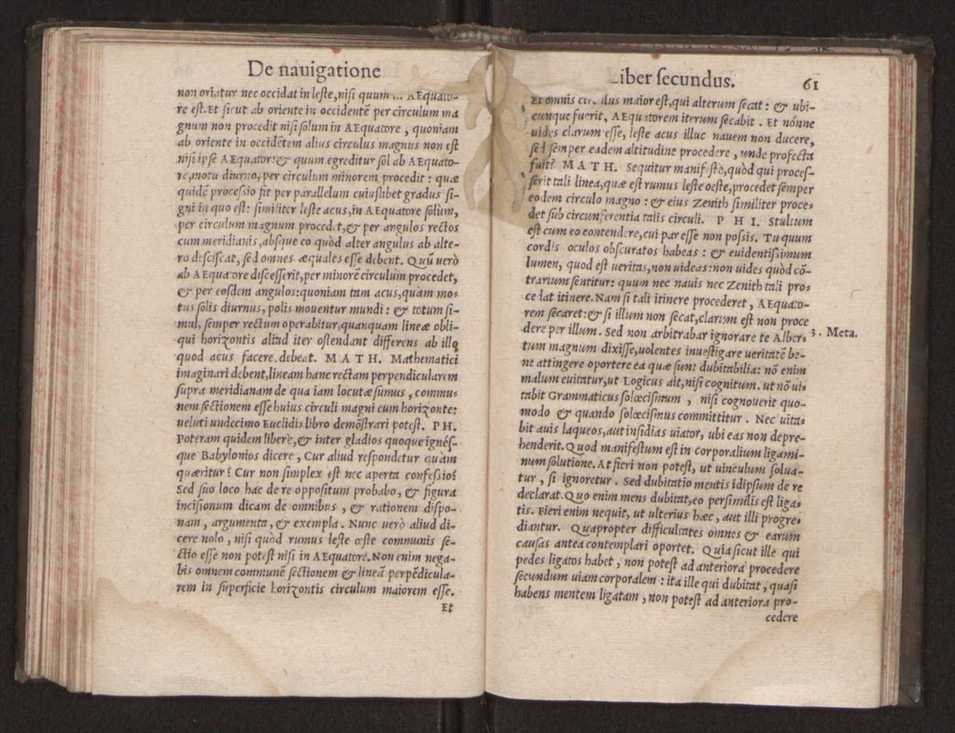 De nauigatione
non oriatur nec occidat in leste, nisi quum AEquato-
re est. Et sicut ab oriente in occidentē per circulum ma
gnum non procedit nisi solum in AEquatore, quoniam
ab oriente in occidētem alius circulus magnus non est
nisi ipse AEquator: & quum egreditur sol ab AEquato-
re, motu diurno, per circulum minorem procedit: quæ
quidē processio fit per parallelum cuiuslibet gradus si-
gni in quo est: similiter leste acus, in AEquatore solum,
per circulum magnum procedit, & per angulos rectos
cum meridianis, absque eo quòd alter angulus ab alte-
ro desciscat, sed omnes æquales esse debent. Quū verò
ab AEquatore discesserit, per minorē circulum procedet,
& per eosdem angulos: quoniam tam acus, quàm mo-
tus solis diurnus, polis mouentur mundi: & totum si-
mul, semper rectum operabitur, quanquam lineæ obli-
qui horizontis aliud iter ostendant differens ab illo
quod acus facere debeat. MATH. Mathematici
imaginari debent, lineam hanc rectam perpendicularem
supra meridianam de qua iam locutæ sumus, commu-
nem sectionem esse huius circuli magni cum horizonte:
veluti vndecimo Euclidis libro demōstrari potest. PH.
Poteram quidem liberè, & inter gladios quoque ignés-
que Babylonios dicere, Cur aliud respondetur quàm
quæritur? Cur non simplex est nec aperta confessio?
Sed suo loco hac de re oppositum probabo, & figura
incisionum dicam de omnibus, & rationem dispo-
nam, argumenta, & exempla. Nunc verò aliud di-
cere nolo, nisi quòd rumus leste oeste communis se-
ctio esse non potest nisi in AEquatore. Non enim nega-
bis omnem communē sectionem & lineā perpēdicula-
rem in superficie horizontis circulum maiorem esse.
Et
Liber secundus. 61
Et omnis circulus maior est, qui alterum secat: & ubi-
cunque fuerit, AEquatorem iterum secabit. Et nónne
uides clarum esse, leste acus illuc nauem non ducere,
sed semper eadem altitudine procedere, unde profecta
fuit? MATH. Sequitur manifestò, quòd qui proces-
serit tali linea, quæ est rumus leste oeste, procedet semper
eodem circulo magno: & eius Zenith similiter proce-
det sub circunferentia talis circuli. PHI. Stultum
est cum eo contendere, cui par esse non possis. Tu quum
cordis oculos obscuratos habeas: & euidentissimum
lumen, quod est ueritas, non uideas: non uides quòd cō-
trarium sentitur: quum nec nauis nec Zenith tali pro-
cedat itinere. Nam si tali itinere procederet, AEquato-
rem secaret: & si illum non secat, clarum est non proce
dere per illum. Sed non arbitrabar ignorare te Alber-
3. Meta.
tum magnum dixisse, uolentes inuestigare ueritatē be-
ne attingere oportere ea quæ sunt dubitabilia: nō enim
malum euitatur, ut Logicus ait, nisi cognitum. ut nō ui-
tabit Grammaticus solœcismum, nisi cognouerit quo-
modo & quando solœcismus committitur. Nec uita-
bit auis laqueos, aut insidias uiator, ubi eas non depre-
henderit. Quod manifestum est in corporalium ligami-
num solutione. At fieri non potest, ut uinculum solua-
tur, si ignoretur. Sed dubitatio mentis idipsum de re
declarat. Quo enim mens dubitat, eo persimilis est liga-
tis. Fieri enim nequit, ut ulterius hæc, aut illi progre-
diantur. Quapropter difficultates omnes & earum
causas antea contemplari oportet. Quia sicut ille qui
pedes ligatos habet, non potest ad anteriora procedere
secundum uiam corporalem: ita ille qui dubitat, quasi
habens mentem ligatam, non potest ad anteriora pro-
cedere